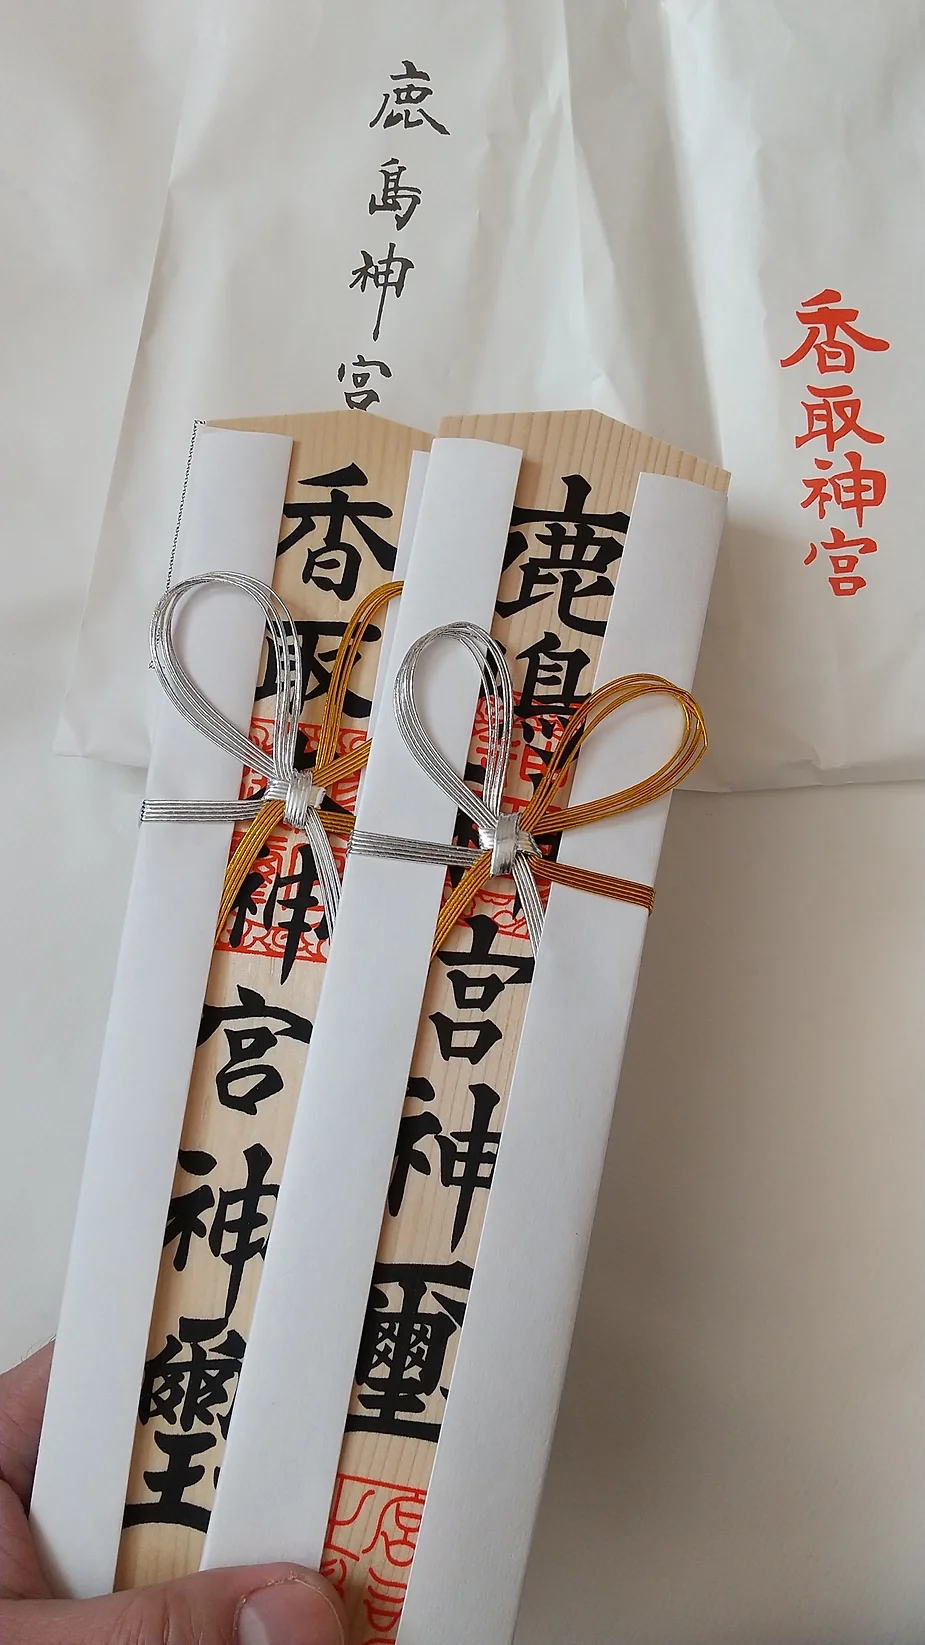 鹿島神宮
香取神宮
鹿島神宮神璽
香取大神宮神璽